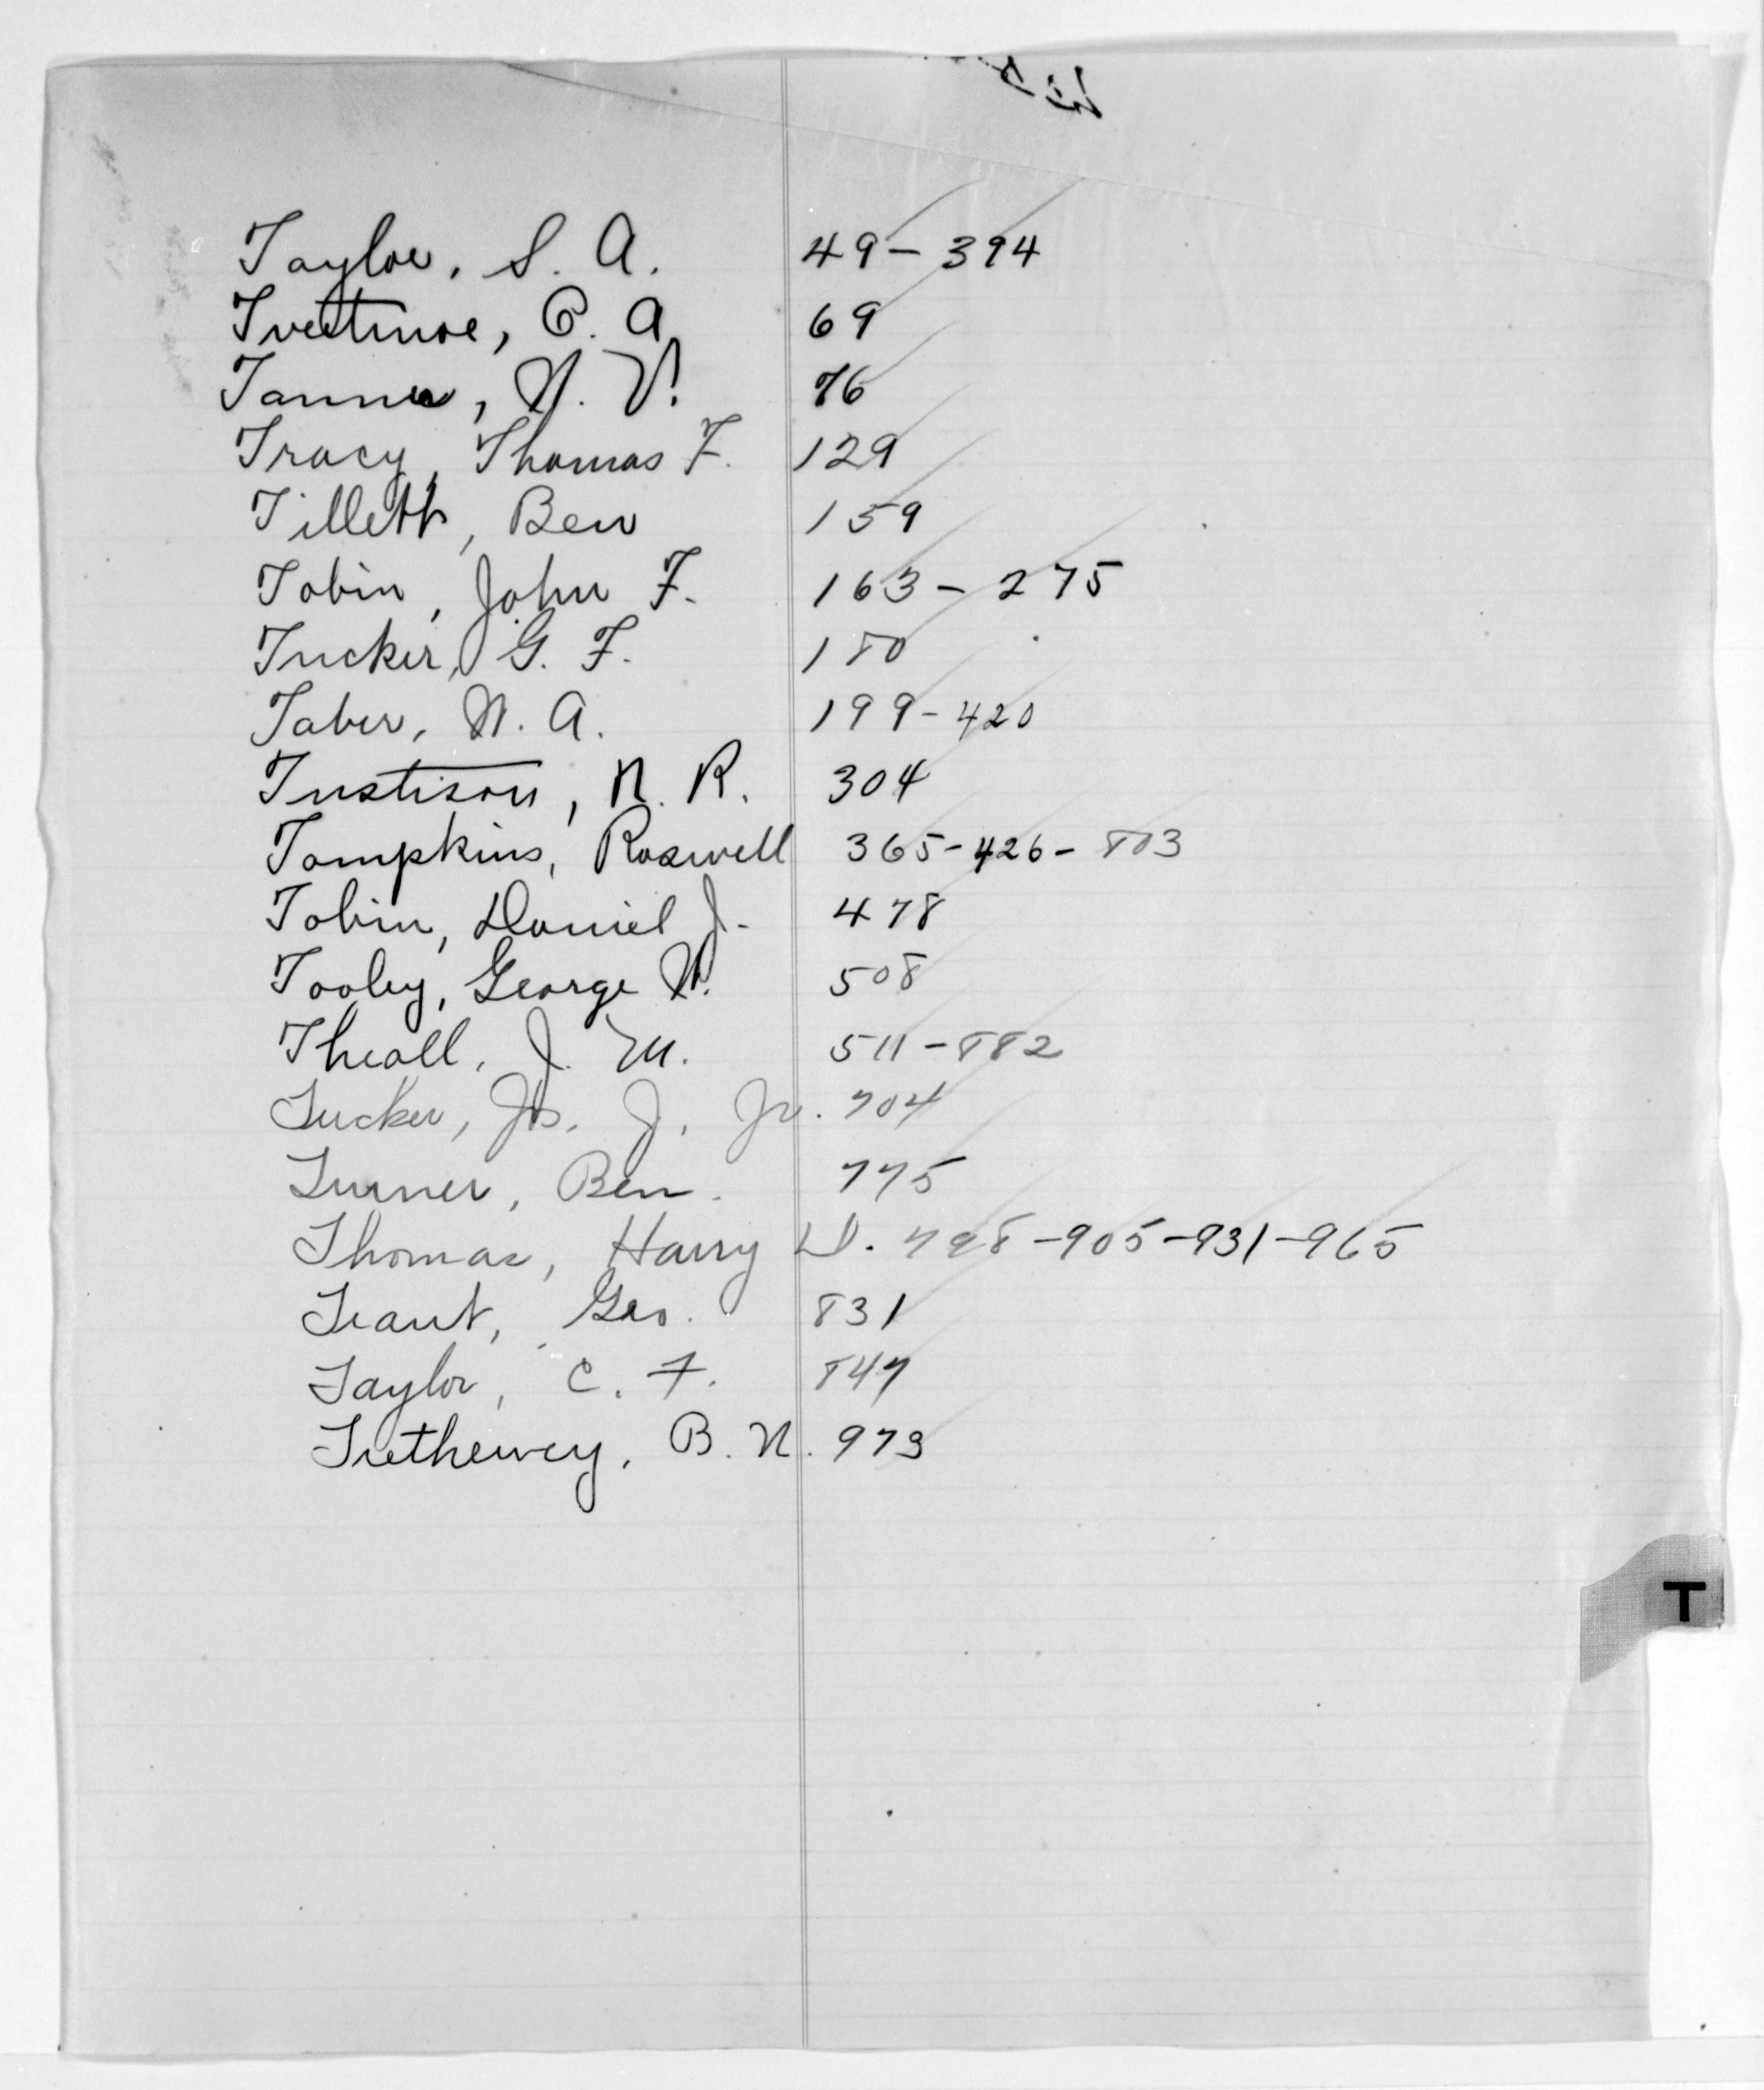 Taylor, S. A. 49 - 394
Tveitmoe, O. A. 69
Tanner, H. V. 76
Tracy, Thomas F. 129
Tillett, Ben 159
Tobin, John F. 163 - 275
Tucker, G. F. 180
Taber, W. A. 199 - 420
Tustison, N. R. 304
Tompkins, Roswell 365 - 426 - 803
Tobin, Daniel J. 478
Tooley, George W. 508
Theall, J. M. 511 - 882
Tucker, Js. J. Jr. 704
Turner, Ben. 775
Thomas, Harry D. 798 - 905 - 931 - 965
Geo. 831
Taylor, C. F. 847
Trethewey, B. N. 973
T